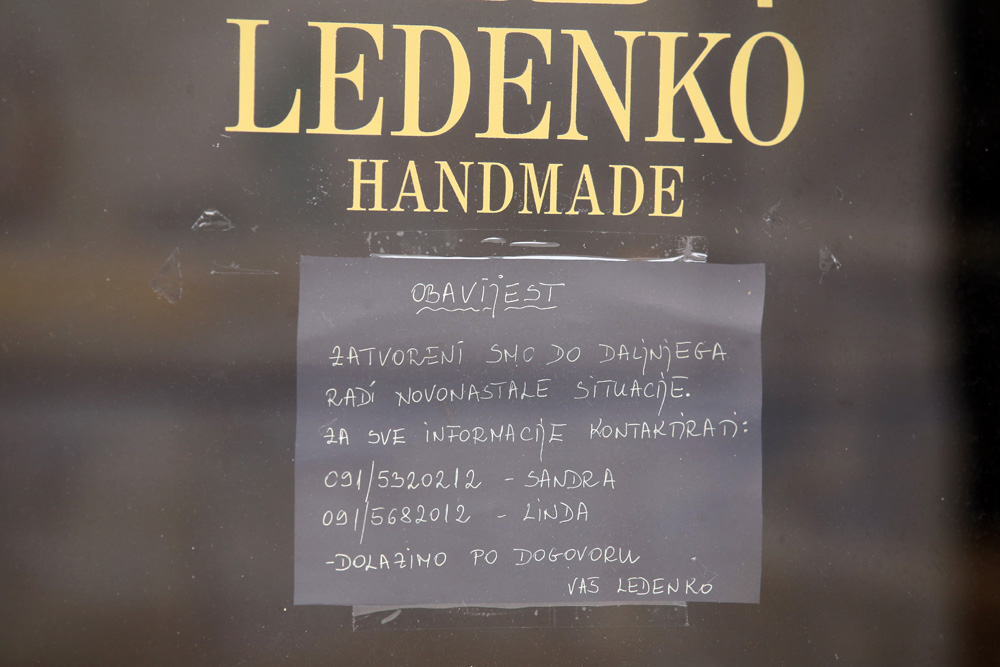 LEDENKO
HANDMADE
OBAVIJEST
ZATVORENI SMO DO DALJNJEGA
RADI NOVONASTALE SITUACIJE.
ZA SVE INFORMACIJE KONTAKTIRATI:
091/5320212 - SANDRA
091/5682012 - LINDA
-DOLAZIMO PO DOGOVORU
VAŠ LEDENKO